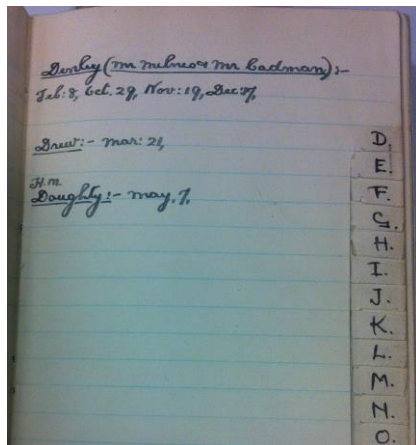 Denley (Mr Milnes & Mr Cadman):-
Feb: 8, Oct. 29, Nov: 19, Dec: 17,
Drew:- Mar: 21,
H.M.
Doughty:- May. 7,
D.
E.
F.
G.
H.
I.
J.
K.
L.
M.
N.
O.